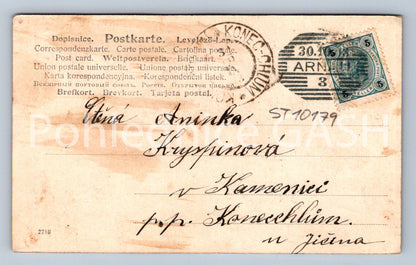 Dopisnice. Postkarte. Levelező-Lap.
Correspondenzkarte. Carte postale. Cartolina postale.
Post card. Weltpostverein. Briefkaart.
Union postale universelle. Unione postale universale.
Karta korespondencyjna. Korespondenční lístek.
Всемирный почтовый союзъ. Россія. Открытое письмо.
Brefkort. Brevkort. Tarjeta postal.
KONEC-CHLUM
30.
ARN
3
5 5
ST10179
Pohlednice CASH
Ctěná Aninka
Kryspinová
v Kamenici
p.p. Konecchlüm.
u Jičína
2710